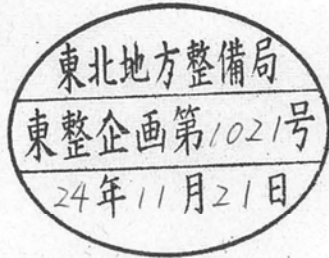 東北地方整備局
東整企画第1021号
24年11月21日